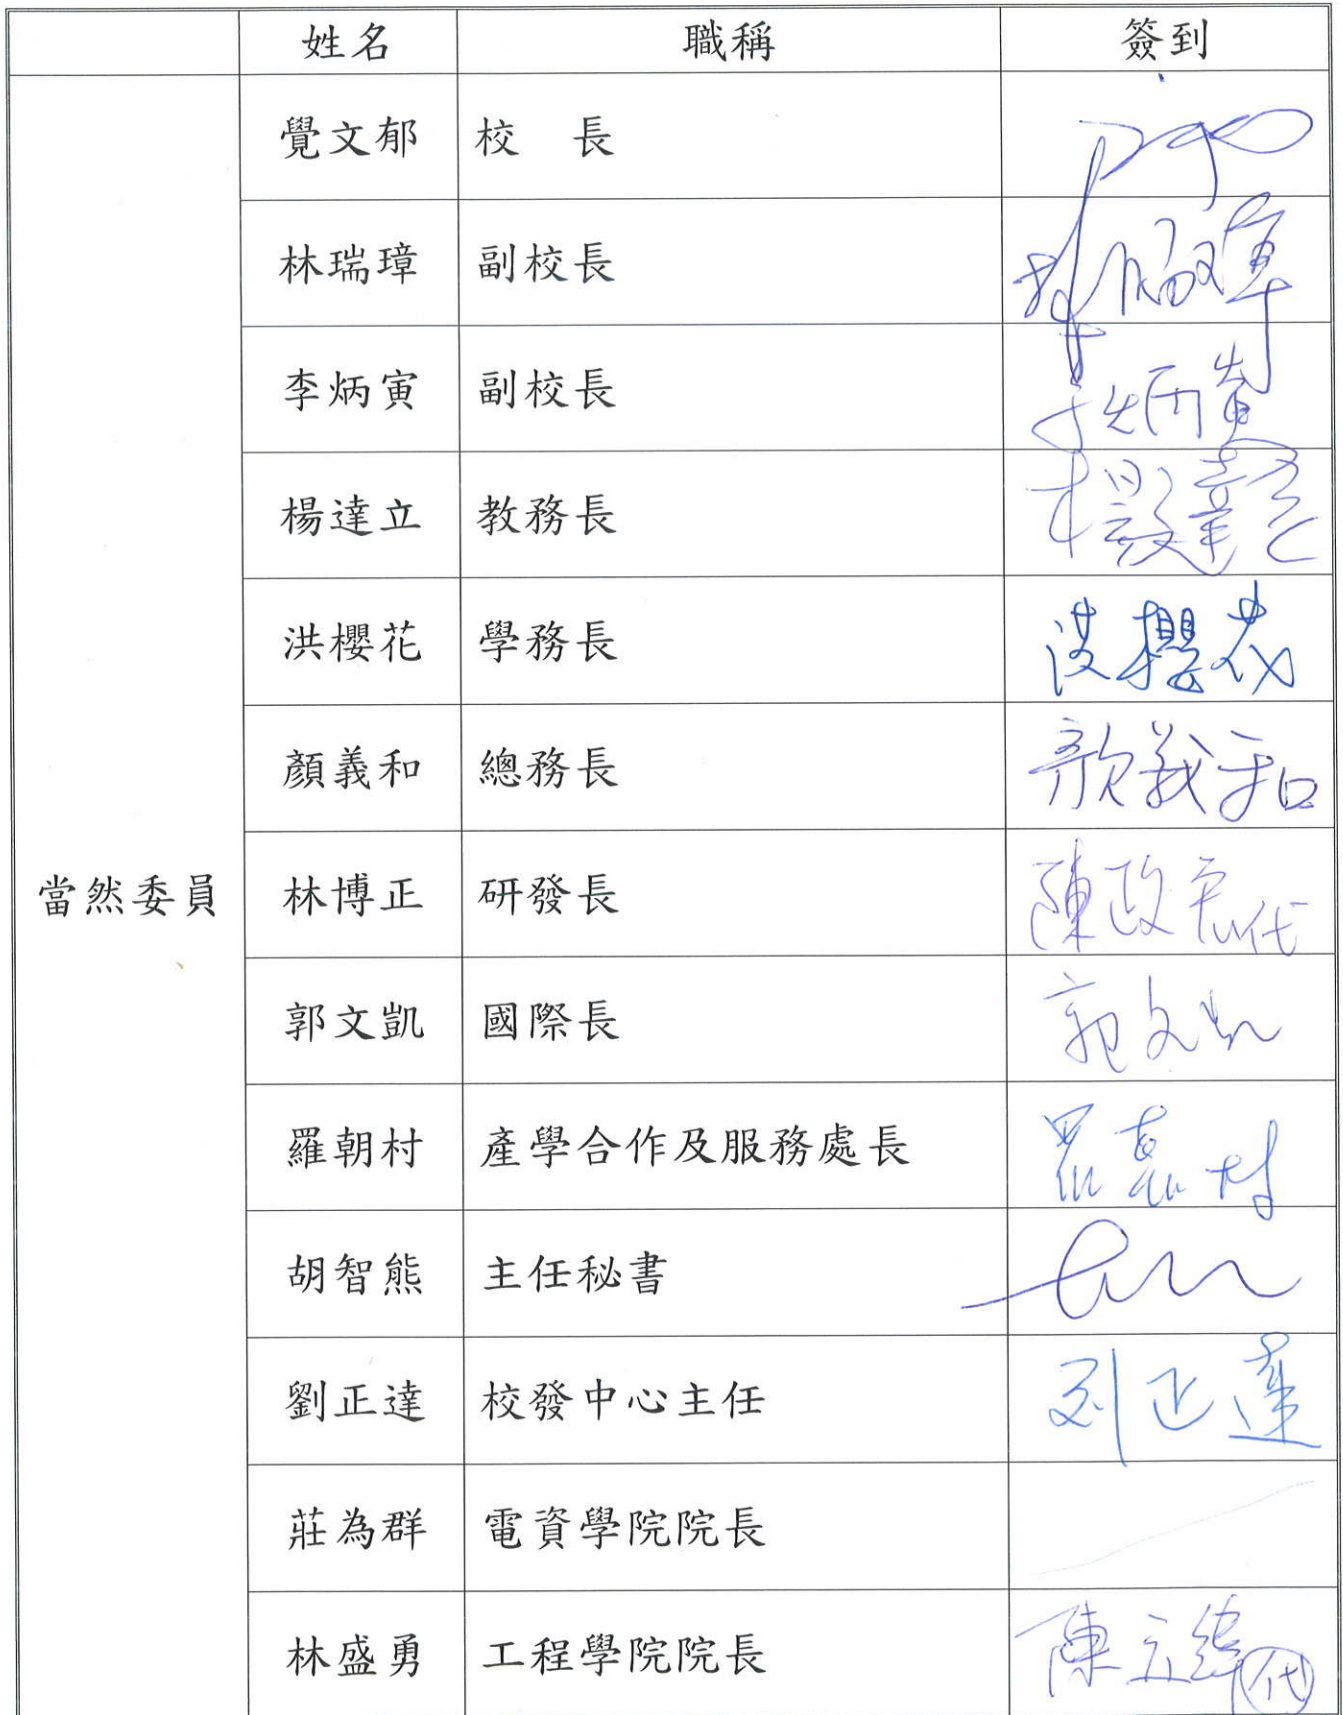 姓名 職稱 簽到
覺文郁 校 長
林瑞璋 副校長
李炳寅 副校長 李炳寅
楊達立 教務長 楊達立
洪櫻花 學務長 洪櫻花
顏義和 總務長 顏義和
當然委員 林博正 研發長 陳政宏代
郭文凱 國際長 郭文凱
羅朝村 產學合作及服務處長
胡智熊 主任秘書
劉正達 校發中心主任 刘正達
莊為群 電資學院院長
林盛勇 工程學院院長 陳立緯代